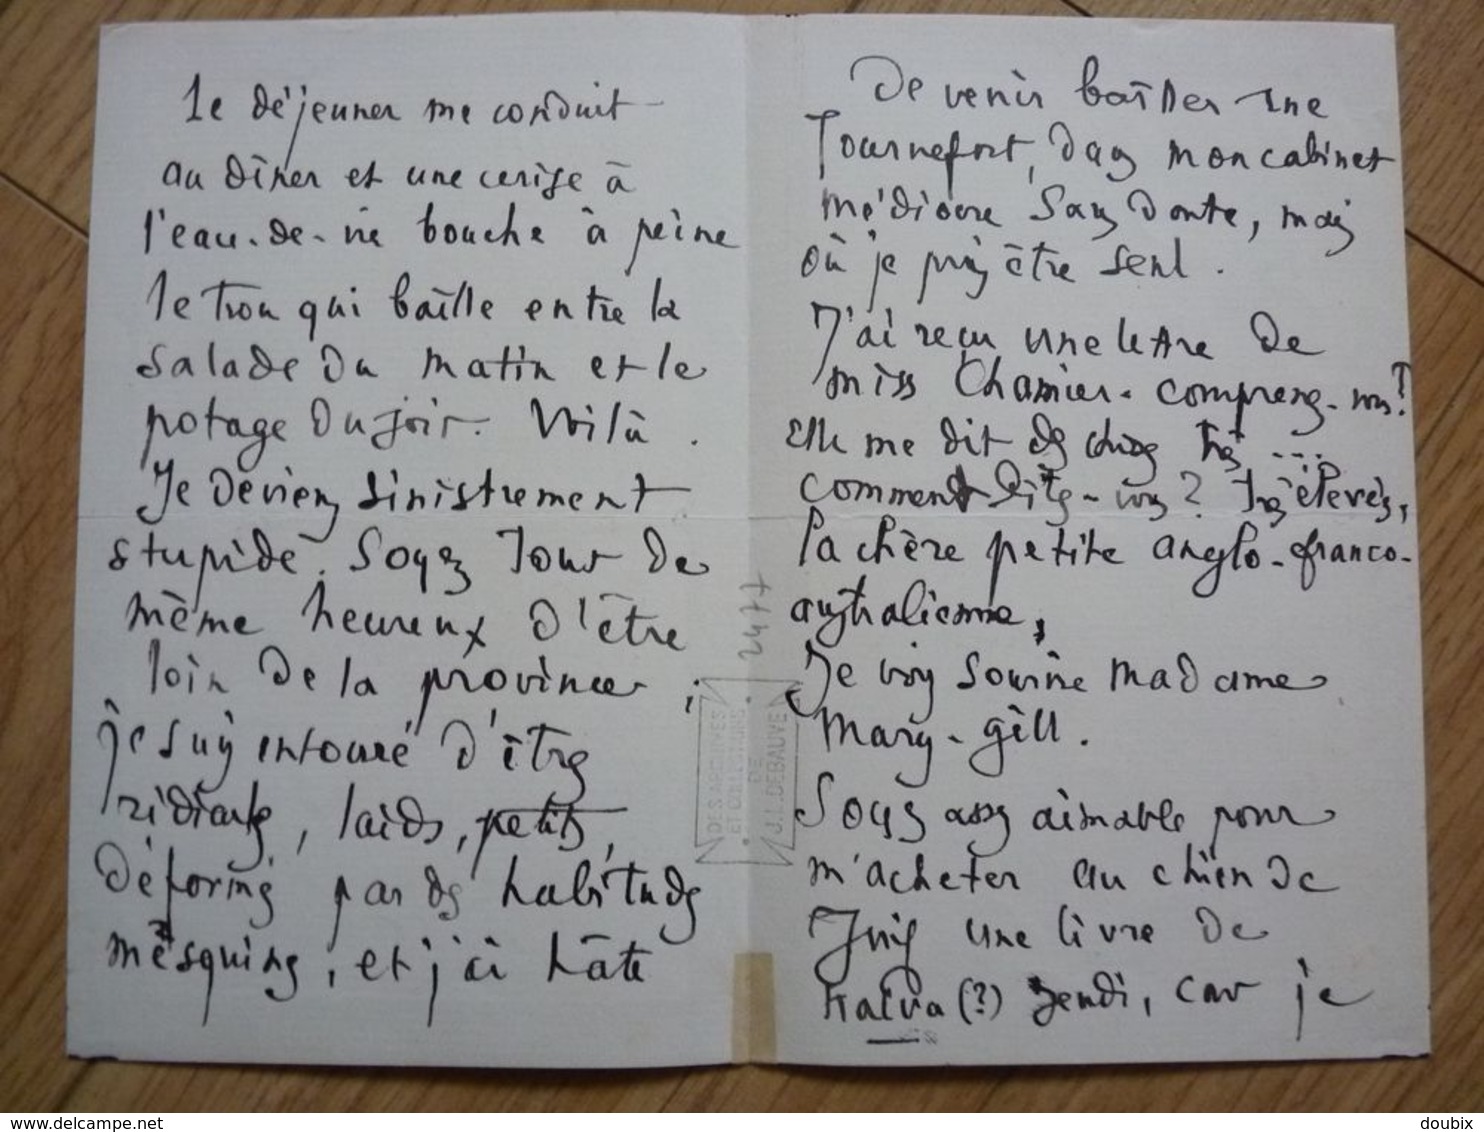 le déjeuner me conduit
au dîner et une cerise à
l'eau-de-vie bouche à peine
le trou qui baîlle entre la
salade du matin et le
potage du soir. Voilà.
Je deviens sinistrement
stupide. Soyez tout de
même heureux d'être
loin de la province ;
je suis entouré d'êtres
ridicules, laids, petits,
déformés par des habitudes
mesquines, et j'ai hâte
de venir baîller rue
Tournefort, dans mon cabinet
médiocre sans doute, mais
où je puis être seul.
J'ai reçu une lettre de
miss Chamier. comprenez-vous?
Elle me dit des choses très ...
comment dites-vous ? très élevées,
la chère petite anglo-franco-
australienne,
Je vois sourire Madame
Mary-gill.
Soyez assez aimable pour
m'acheter au chien de
une livre de
(?) jeudi, car je
2477
DES ARCHIVES
ET COLLECTIONS
DE
J.L. DEBAUVE
delcampe.net
doubix